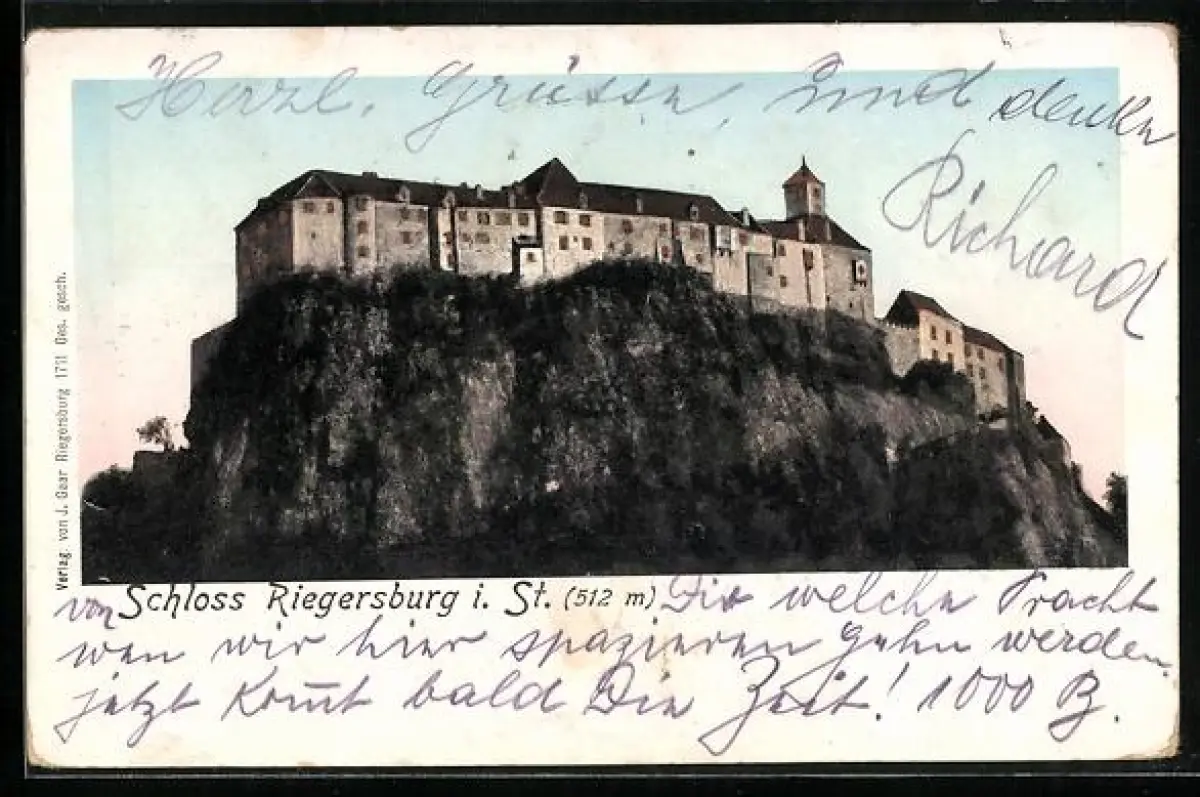 Herzl. Grüsse, und denke
Richard
Verlag von J. Gaar Riegersburg 1711 Ges. gesch.
von Schloss Riegersburg i. St. (512 m) Dir welche Pracht
wen wir hier spazieren gehn werden,
jetzt Komt bald Die Zeit! 1000 B.